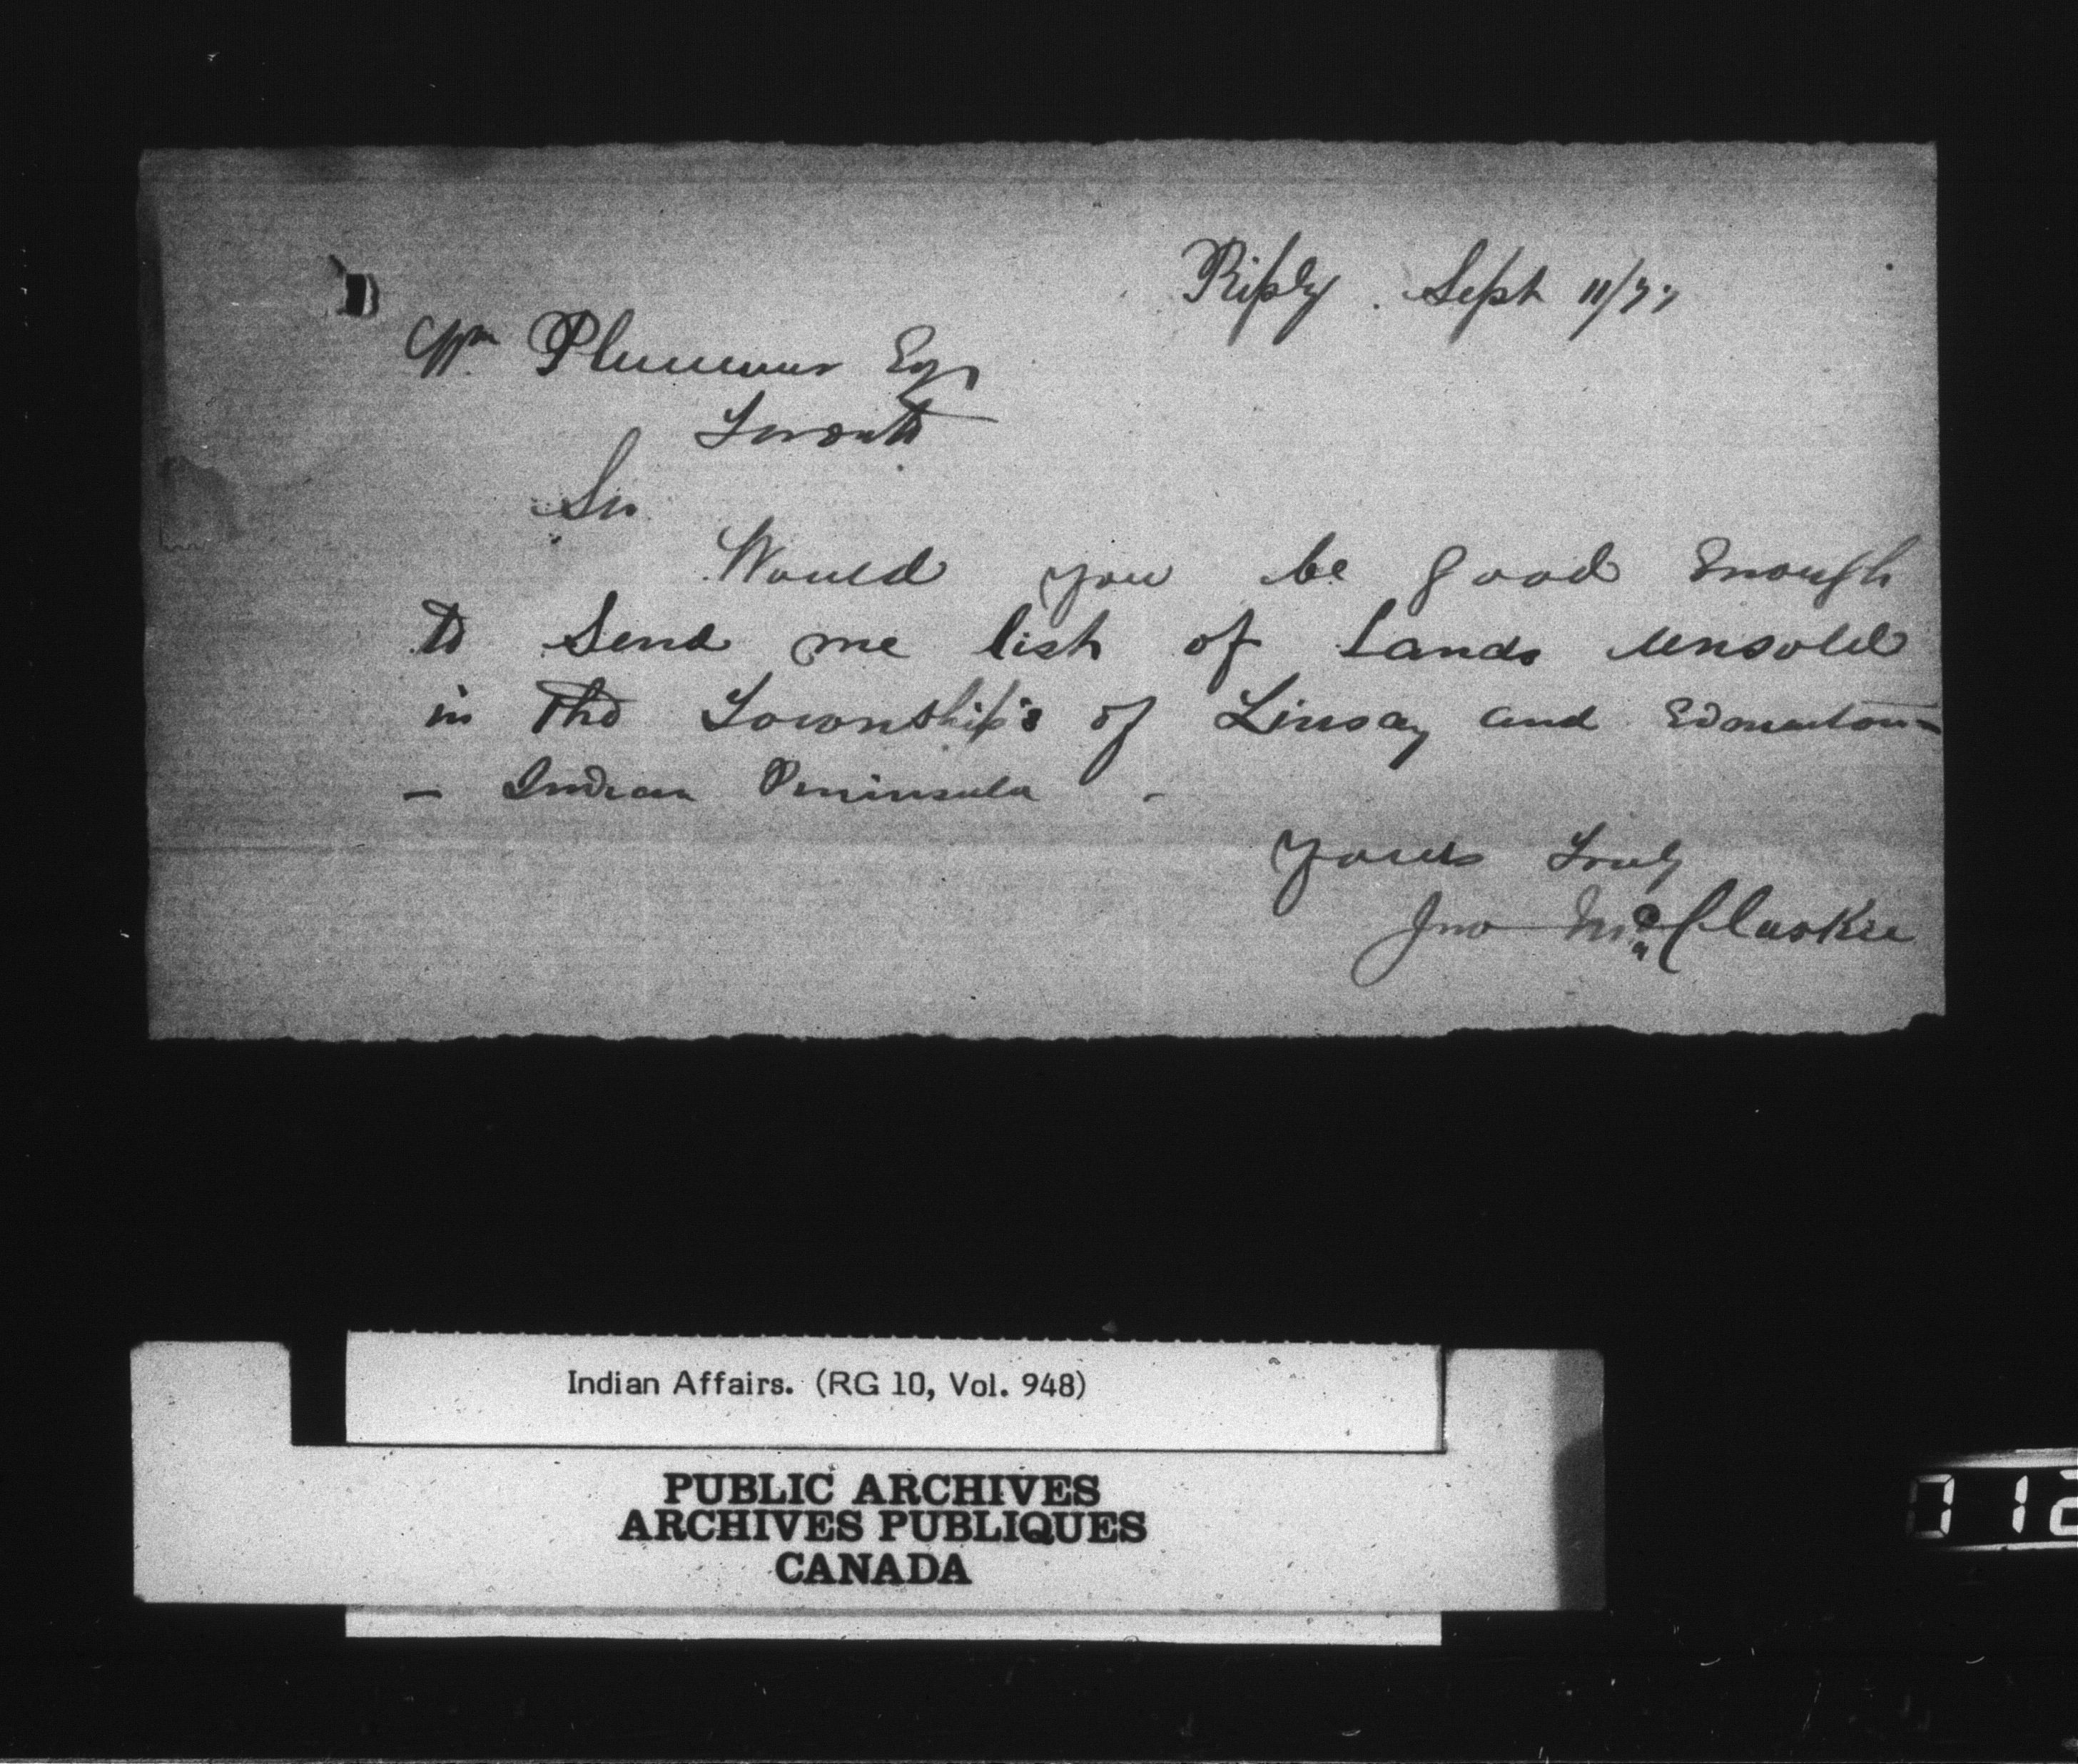 Riply. Sept 11/77
Wm Plummer Esq
Toronto
Sir
Would you be good Enough
to Send me list of Lands unsold
in the Township's of Linsay and
- Indian Peninsula -
Yours Truly
Jno McCluskie
Indian Affairs. (RG 10, Vol. 948)
PUBLIC ARCHIVES
ARCHIVES PUBLIQUES
CANADA
712